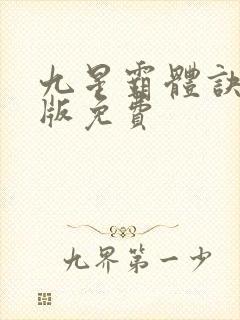 九星霸體訣
版免費
九界第一少